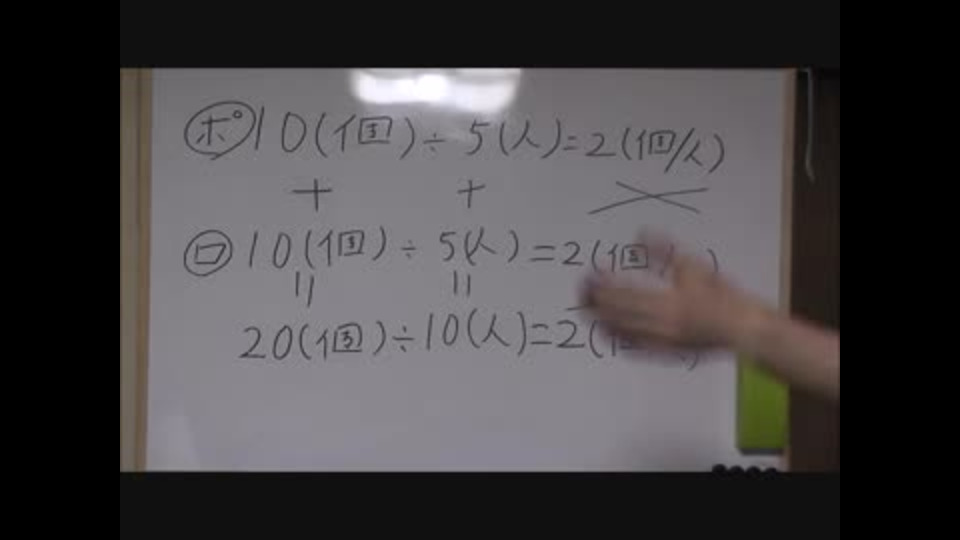 ポ 10(個)÷5(人)=2(個/人)
+ +
ロ 10(個)÷5(人)=2(個
20(個)÷10(人)=2(